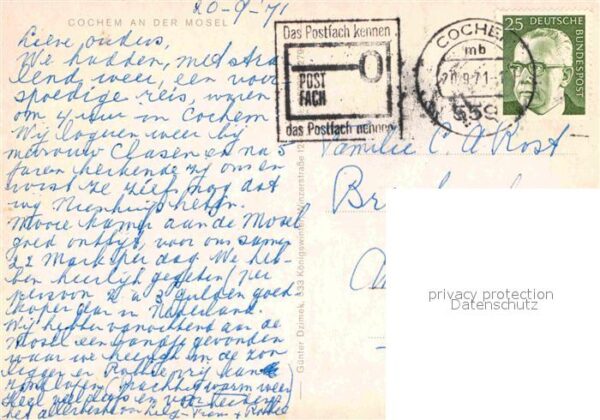 COCHEM AN DER MOSEL
20-9-71
Lieve ouders,
We hadden, met stra
lend weer, een voor
spoedige reis, waren
om 4 uur in Cochem
Wij logeren weer bij
mevrouw Clasen en na 5
jaren herkende zij ons en
wist ze zelfs nog dat
wij
Mooie kamer aan de Mosel
goed ontbijt, voor ons samen
22 Mark per dag. We heb-
ben heerlijk gegeten (per
persoon 2 a 3 gulden goed
koper dan in Nederland.
Wij hebben vanochtend aan de
Mosel een gevonden
waar we heerlijk in de zon
liggen en
(prachtig warm weer)
het allerbeste
Das Postfach kennen
POST
FACH
das Postfach nehmen
COCHEM
mb
20.9.71
559
25 DEUTSCHE
BUNDESPOST
Familie C. A. Rost
Günter Dzimek, 533 Königswinter, Winzerstraße 12
privacy protection
Datenschutz